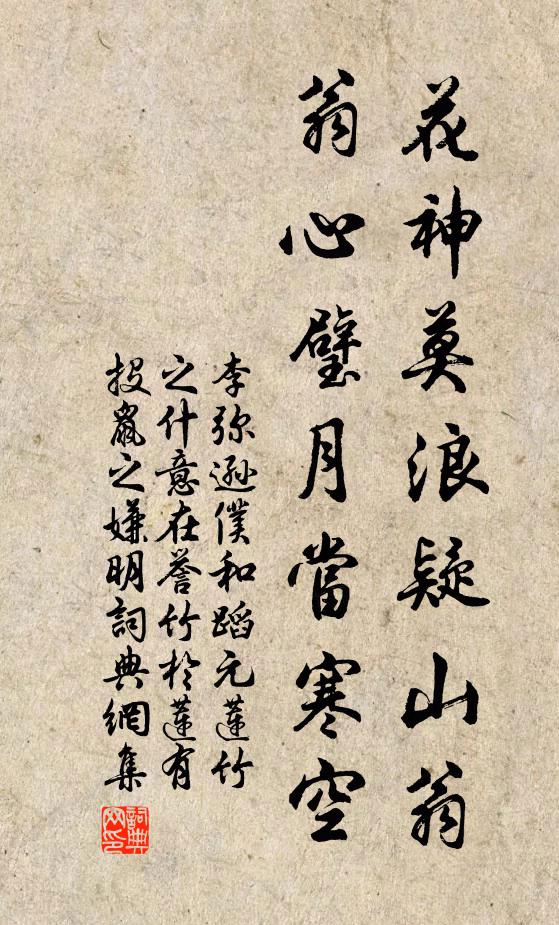 花神莫浪疑山翁
翁心璧月當寒空
李弥遜僕和蹈元蓮竹
之什意在譽竹於蓮有
投鼠之嫌明詞典網集
詞典网印